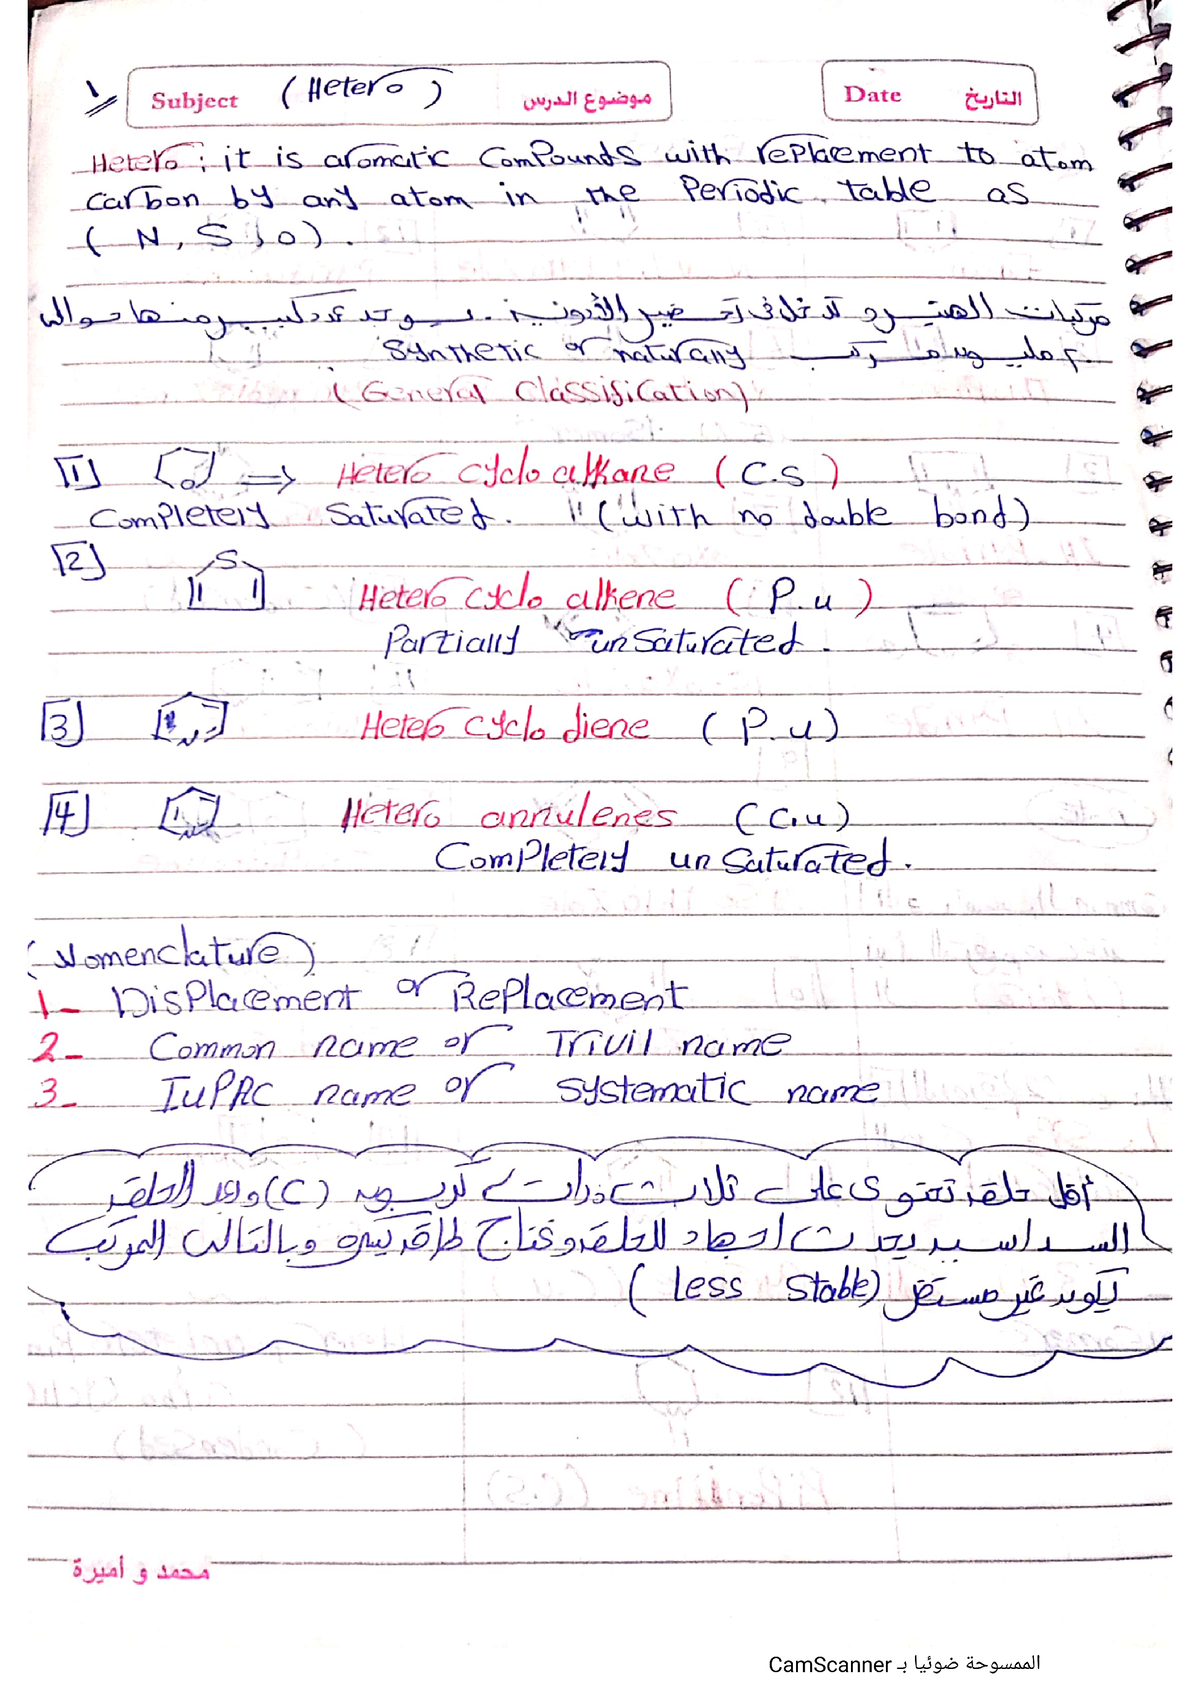 ١
Subject (Hetero) موضوع الدرس
Date التاريخ
Hetero : it is aromatic Compounds with replacement to atom
Carbon by any atom in the Periodic table as
( N , S , O ) .
مركبات الهتيرو تدخل فى تحضير الأدوية . يوجد عدد كبير منها حوالى
٢ مليون مركب Synthetic or naturally
( General Classification )
[1] O ⇒ Hetero cyclo alkane ( C.S )
Completely Saturated. (with no double bond)
[2] S Hetero cyclo alkene ( P.u )
Partially unSaturated .
[3] N Hetero cyclo diene ( P.u )
[4] Hetero annulenes ( C.u )
Completely unSaturated .
( Nomenclature )
1- Displacement or Replacement
2- Common name or Trivil name
3- IuPAC name or systematic name
أقل حلقة تحتوى على ثلاث ذرات كربون (C) وبعد الحلقة
السداسية يحدث اجهاد للحلقة وتحتاج طاقة كبيرة وبالتالى المركب
يكون غير مستقر (less Stable)
محمد و أميرة
الممسوحة ضوئيا بـ CamScanner